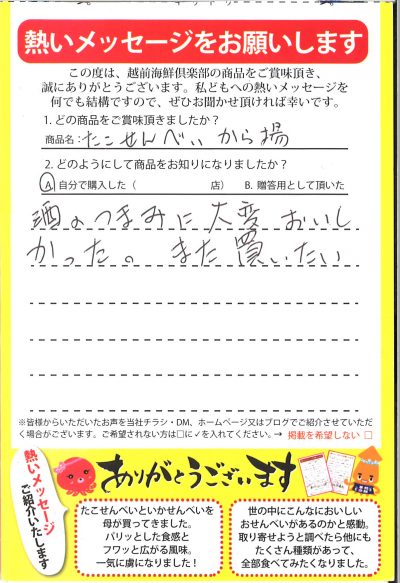 熱いメッセージをお願いします
この度は、越前海鮮倶楽部の商品をご賞味頂き、
誠にありがとうございます。私どもへの熱いメッセージを
何でも結構ですので、ぜひお聞かせ頂ければ幸いです。
1. どの商品をご賞味頂きましたか?
商品名:たこせんべい から揚
2. どのようにして商品をお知りになりましたか?
A. 自分で購入した( 店) B. 贈答用として頂いた
酒のつまみに大変おいし
かった。また買いたい
※皆様からいただいたお声を当社チラシ・DM、ホームページ又はブログでご紹介させていただ
く場合がございます。ご希望されない方は□に✓を入れてください。→ 掲載を希望しない □
熱いメッセージ
ご紹介いたします
ありがとうございます
たこせんべいといかせんべいを
母が買ってきました。
パリッとした食感と
フワッと広がる風味。
一気に虜になりました!
世の中にこんなにおいしい
おせんべいがあるのかと感動。
取り寄せようと調べたら他にも
たくさん種類があって、
全部食べてみたくなりました。